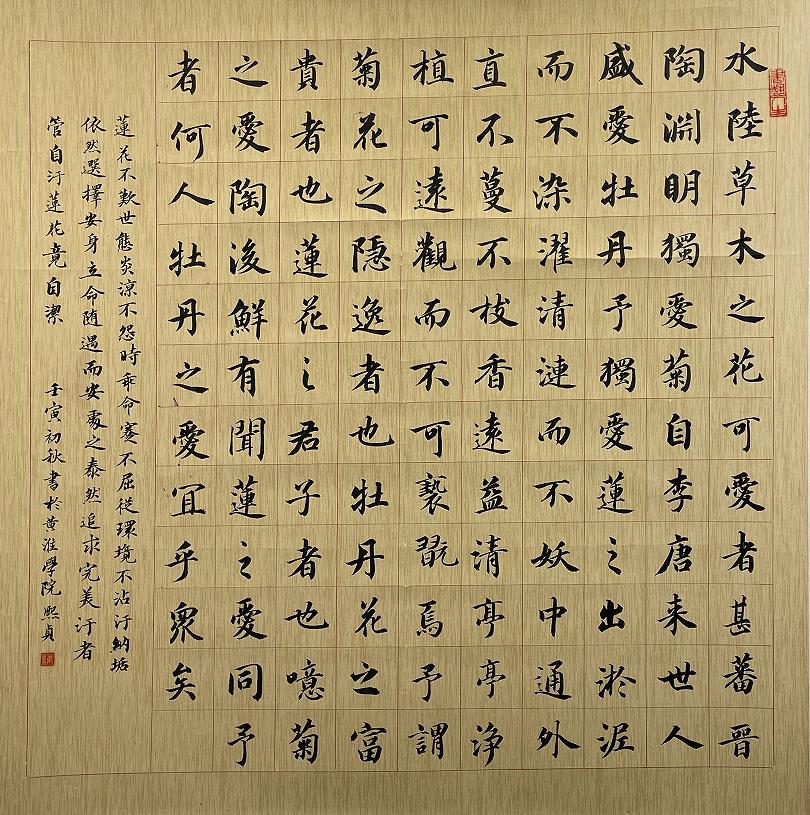 水陸草木之花可愛者甚蕃晉
陶淵明獨愛菊自李唐来世人
盛愛牡丹予獨愛蓮之出淤泥
而不染濯清漣而不妖中通外
直不蔓不枝香遠益清亭亭净
植可遠觀而不可褻翫焉予謂
菊花之隱逸者也牡丹花之富
貴者也蓮花之君子者也噫菊
之愛陶後鮮有聞蓮之愛同予
者何人牡丹之愛宜乎衆矣
蓮花不歎世態炎涼不怨時乖命蹇不屈從環境不沾汙納垢
依然選擇安身立命随遇而安處之泰然追求完美汙者
管自汙蓮花竟自潔 壬寅初秋書於黄淮學院熙貞